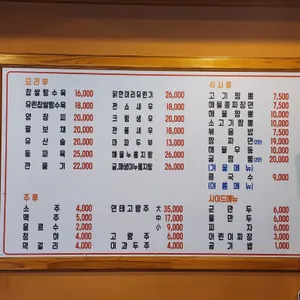 요리부
찹쌀탕수육 16,000
유린찹쌀탕수육 18,000
양장피 20,000
팔보채 20,000
유산슬 20,000
동파육 25,000
깐풍기 22,000
닭안마리유린기 26,000
깐쇼새우 18,000
크림생우 20,000
깐풍새우 20,000
마파두부 13,000
해물누룽지탕 26,000
굴,매생이누룽지탕 26,000
식사류
고기짬뽕 7,500
해물쫑짜장면 7,500
해물짬뽕 10,000
소고기짬뽕 10,000
볶음밥 7,500
잡짜면
해물우동 10,000
굴짬뽕 10,000
(겨울메뉴)
콩국수 9,000
(여름메뉴)
주류
소주 4,000
맥주 5,000
음료수 2,000
정마 4,000
막걸리 4,000
연태고량주 大 35,000
中 17,000
小 9,000
고량주 6,000
이과두주 4,000
사이드메뉴
군만두 6,000
만두 6,000
피자 6,000
어린이짜장 3,000
공기밥 1,000